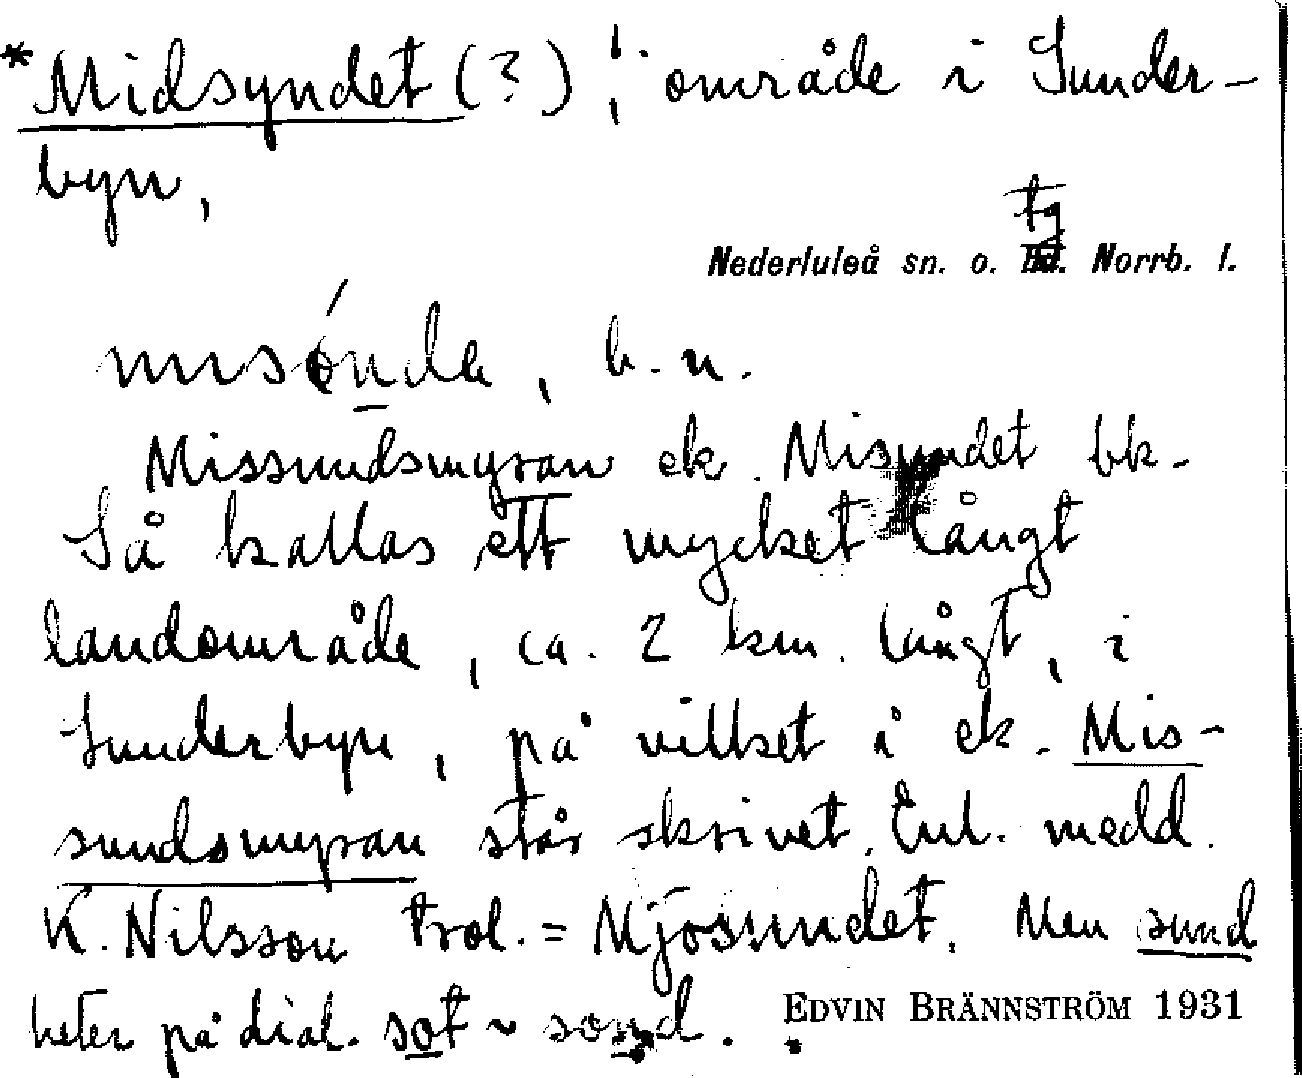 *Midsyndet (?) ! område i Sunder-
byn,
tg
Nederluleå sn. o. Norrb. l.
misónda, b.n.
Missundsmyran ek. Misundet bk.
Så kallas ett mycket långt
landområde, ca. 2 km. långt, i
Sunderbyn, på vilket å ek. Mis-
sundsmyran står skrivet. Enl. medd.
K. Nilsson trol. = Mjosundet. Men sund
heter på dial. sot ~ sond.
EDVIN BRÄNNSTRÖM 1931